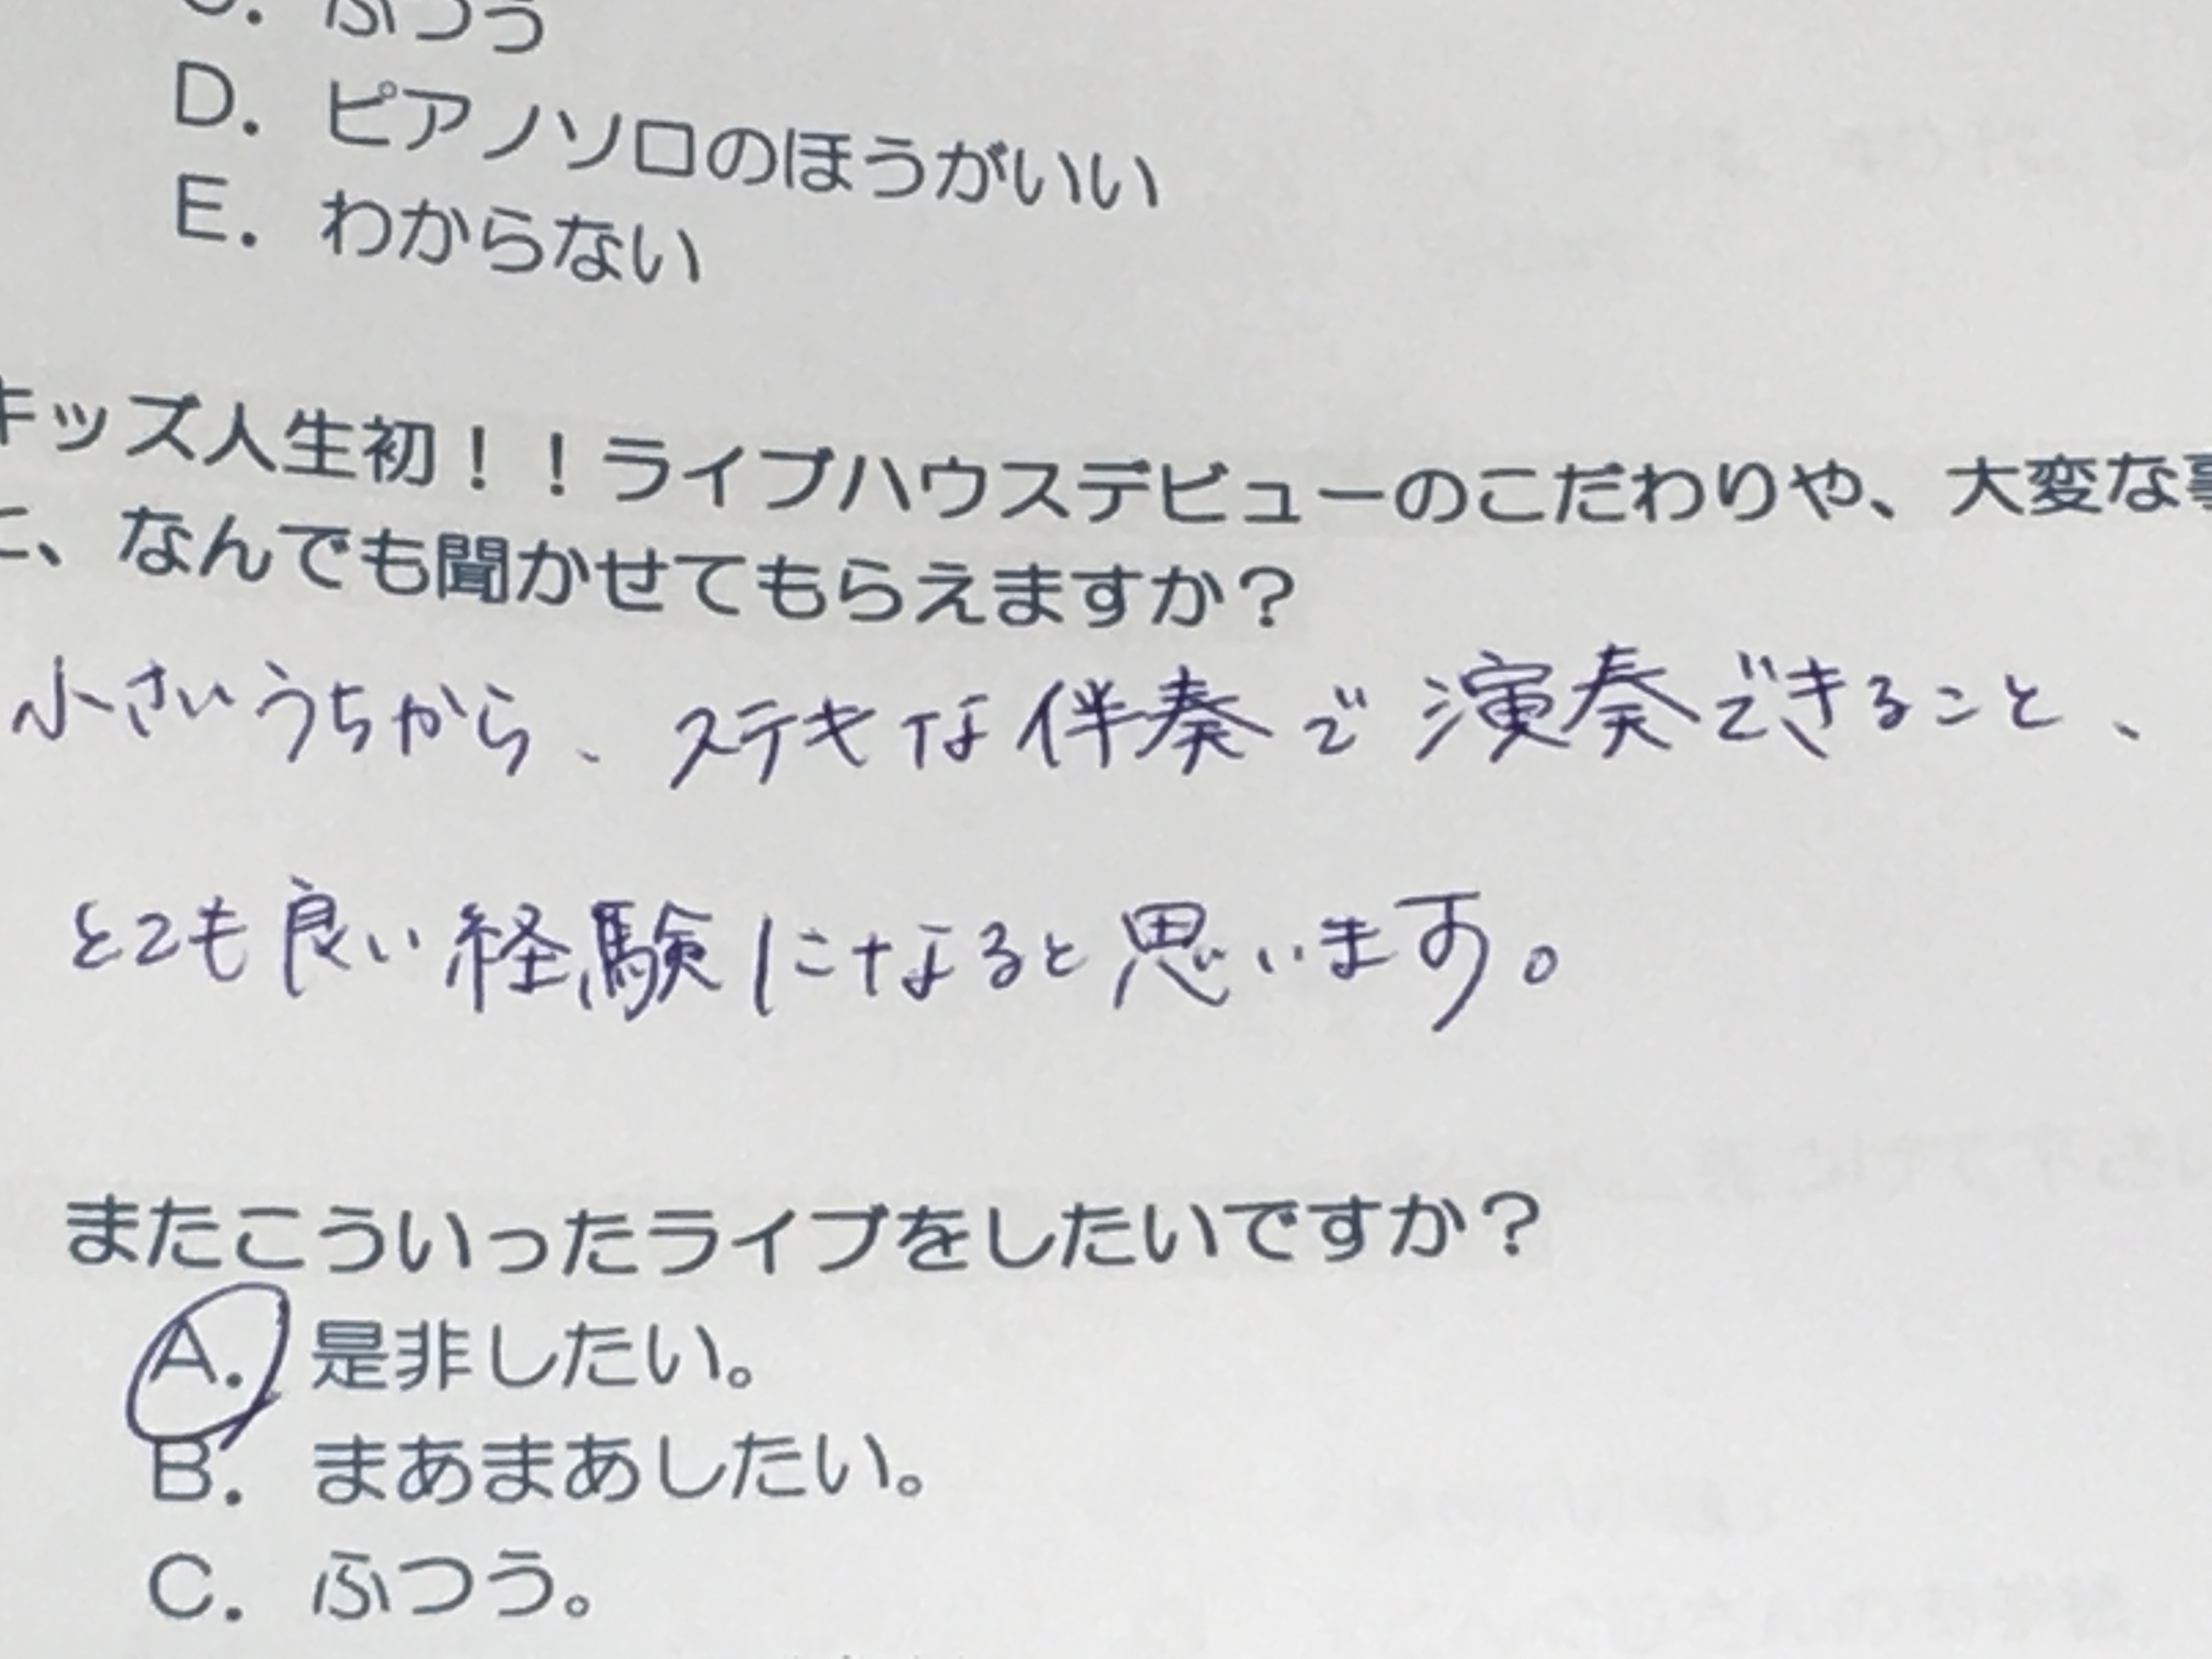 C. ふつう
D. ピアノソロのほうがいい
E. わからない
キッズ人生初！！ライブハウスデビューのこだわりや、大変な事
に、なんでも聞かせてもらえますか？
小さいうちから、ステキな伴奏で演奏できること、
とても良い経験になると思います。
またこういったライブをしたいですか？
A. 是非したい。
B. まあまあしたい。
C. ふつう。